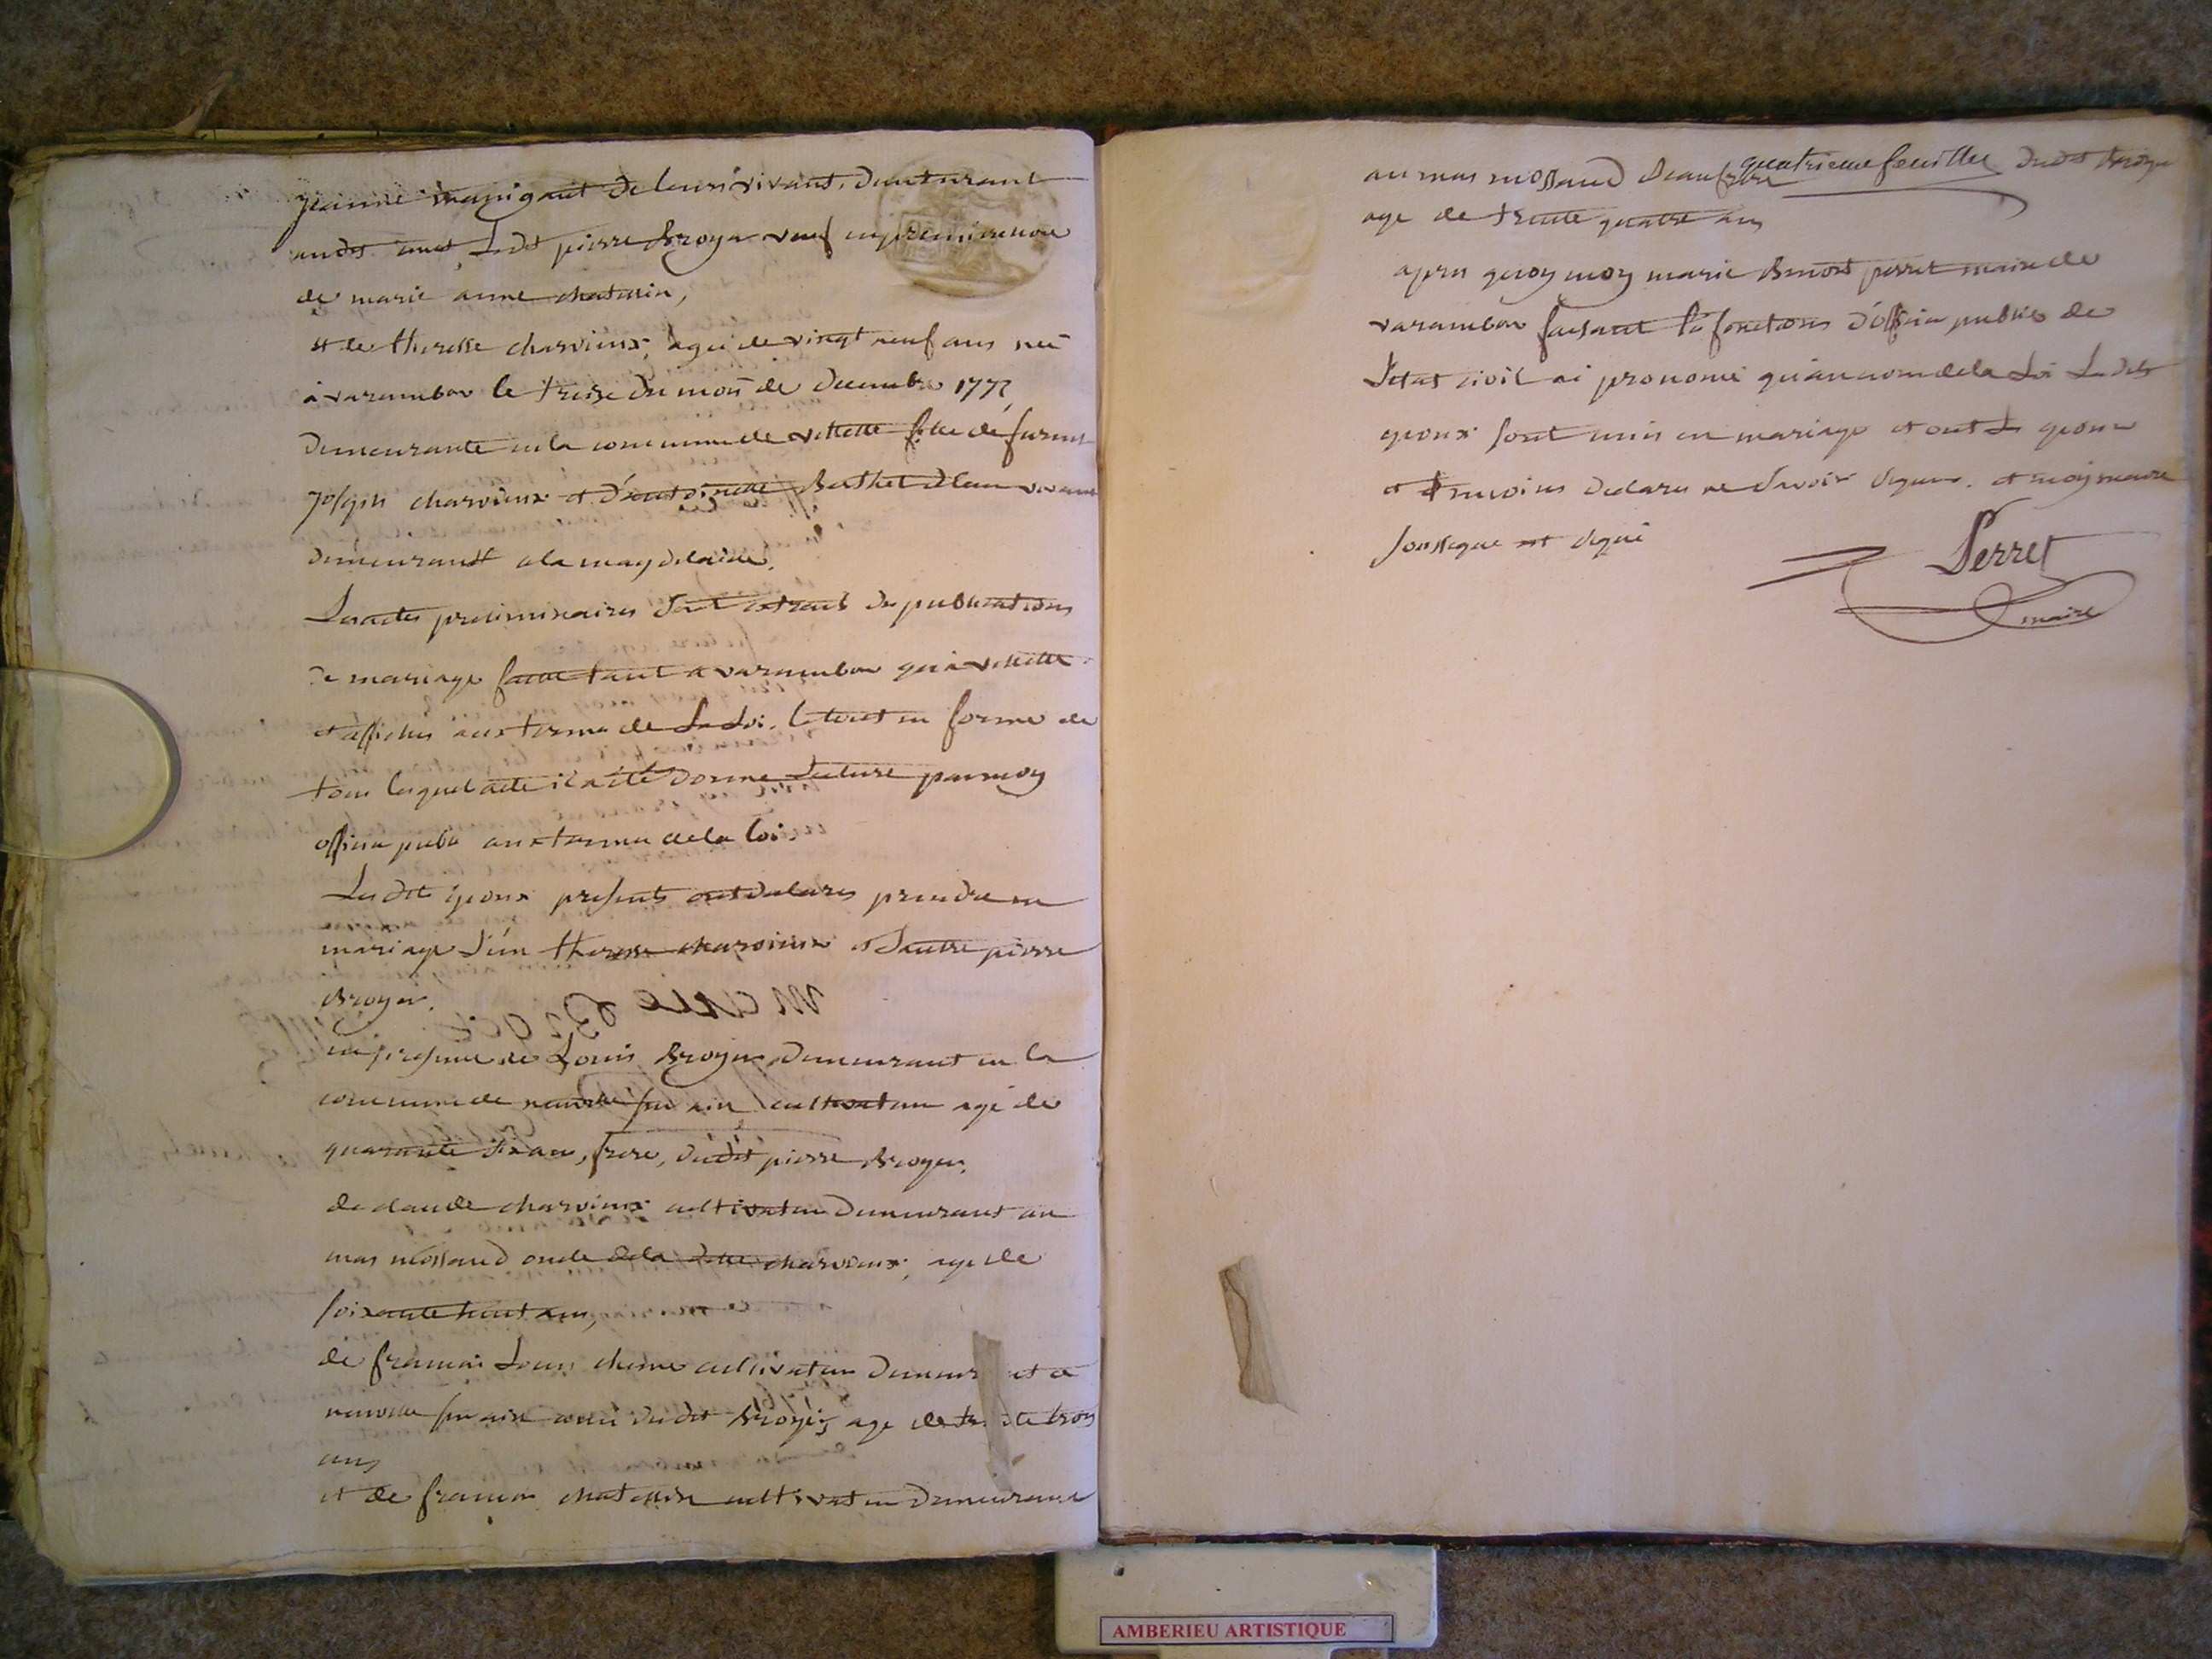 jeanne mapigant de leurs vivant, demeurant
audit lieu, Ledit pierre Broyer veuf en premiere noce
de marie anne chatenin,
et de theresse charvieux, agée de vingt neuf ans née
à varambon le treise du mois de decembre 1773
demeurante en la commune de villette fille de furent
joseph charvieux et d'antoinette Berthet de leur vivant
demeurant a la magdelaine.
Les actes preliminaires sont extraits des publications
de mariage faitte tant a varambon qu'a villette
et affichés aux termes de La Loi. le tout en forme de
tous lesquel acte il a été donné Lecture par moy
officier public aux termes de la loi.
Les dits epoux presents ont declarés prendre en
mariage L'un therese charvieux et Lautre pierre
Broyer.
en presence de Louis Broyer demeurant en la
commune de neuville sur ain cultivateur agé de
quarante six ans, frere, dudit pierre Broyer,
de claude charvieux cultivateur demeurant au
mas mossaud oncle de la ditte charvieux, agé de
soixante huit ans,
de francois Louis cultivateur demeurant a
neuville sur ain dudit Broyer, age de trente trois
ans
et de francois chatenin cultivateur demeurant
quatrieme feuillet
au mas mossaud beaufrere dudit Broyer
age de trente quatre ans
apres quoy moy marie Benoit perret maire de
varambon faisant les fonctions d'officier public de
L'etat civil ai prononcé qu'au nom de la Loi Lesdits
epoux sont unis en mariage et ont Les epoux
et temoins declarés ne savoir signer. et moy maire
soussigné ait signé
Perret
maire
AMBERIEU ARTISTIQUE